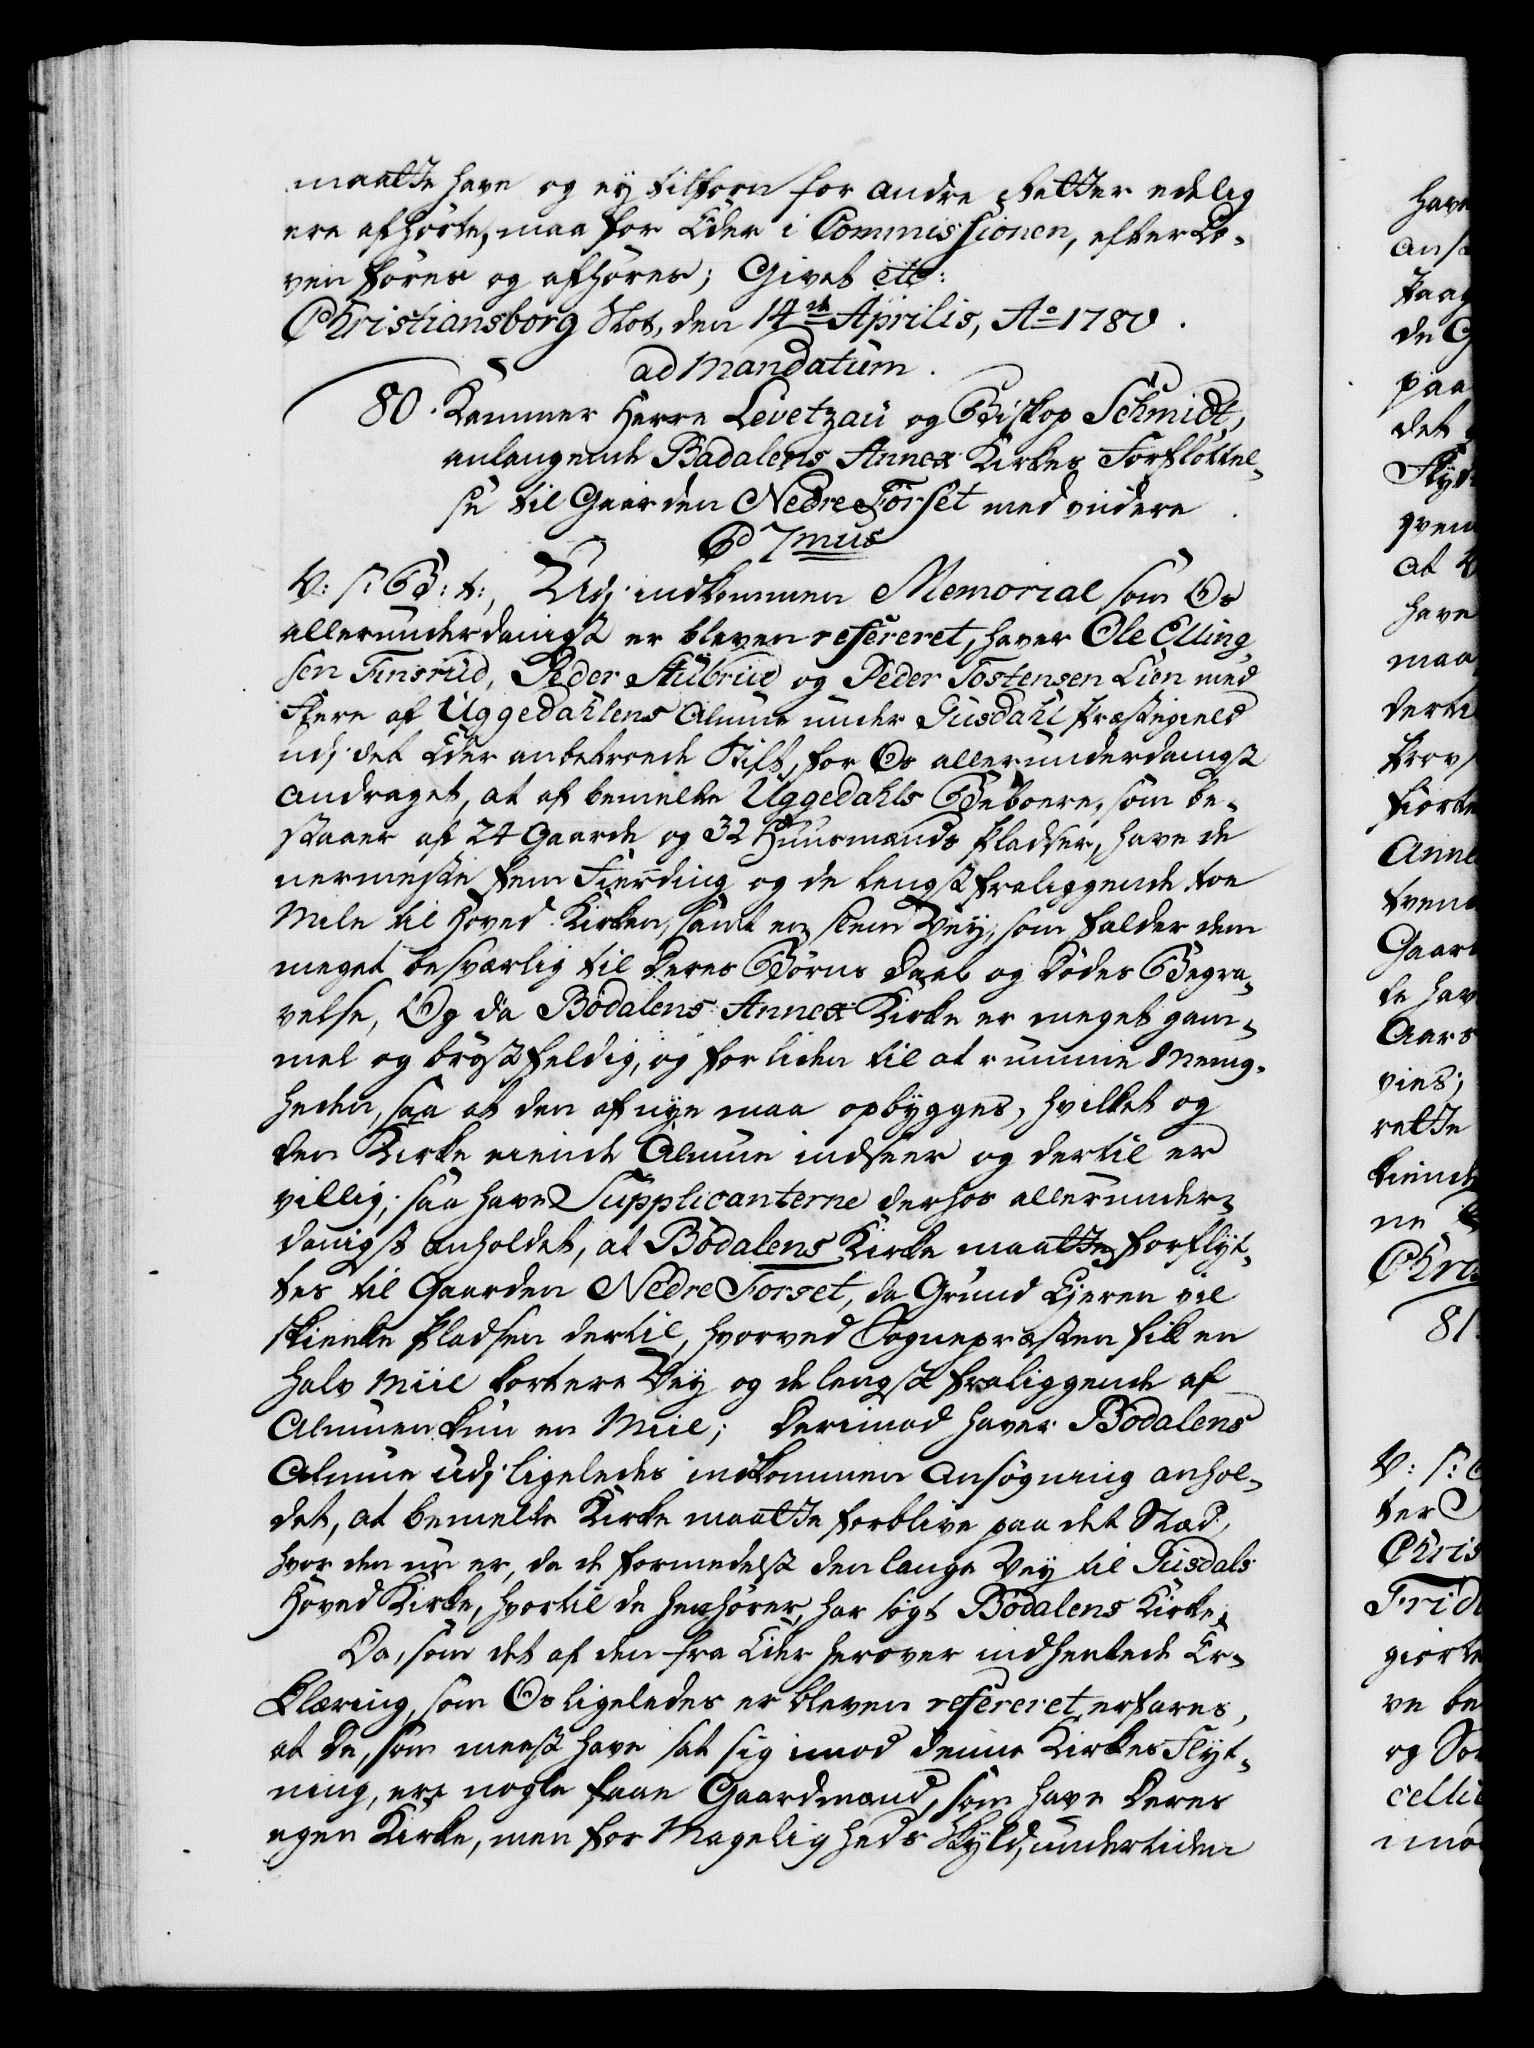 maatte have og ey tilforn for andre Retter edelig
ere afhørte, maa for Eder i Commissionen, efter Lo-
ven føres og afhøres; Givet etc:
Christiansborg Slot, den 14de Aprilis, Ao 1780.
ad mandatum.
80. Kammer Herre Levetzau og Biskop Schmidt,
anlangende Bødalens Annex Kirkes Forfløttel-
se til Gaarden Nedre Forset med videre.
C 7mus
V: S: G: B: t:, Udj indkommen Memorial som Os
allerunderdanigst er bleven refereret, haver Ole Elling-
sen Finsrud, Peder Stubrud og Peder Tostensen Lien med
Flere af Uggedahlens Almue under Gusdahl Præstegield
udj det Eder anbetroede Stift, for Os allerunderdanigst
andraget, at af bemelte Uggedahls Beboere, som be-
staaer af 24 Gaarde og 32 Huusmands Pladser, have de
nermeste fem Fierding og de lengst fraliggende toe
Mile til Hoved Kirken, samt en slem Vey, som falder dem
meget besværlig til deres Børns Daab og Dødes Begra-
velse, Og da Bødalens Annex Kirke er meget gam-
mel og brøstfeldig, og for liden til at rumme Menig-
heden, saa at den af nye maa opbygges, hvilket og
den Kirke eiende Almue indseer og dertil er
villig; saa have Supplicanterne derhos allerunder-
danigst anholdet, at Bødalens Kirke maatte forflyt-
tes til Gaarden Nedre Forset, da Grund Eieren vil
skienke Pladsen dertil, hvorved Sognepræsten fik en
halv Miil kortere Vey og de lengst fraliggende af
Almuen kun en Miil; Derimod haver Bødalens
Almue udj ligeledes indkommen Ansøgning anhol-
det, at bemelte Kirke maatte forblive paa det Stæd,
hvor den nu er, da de formedelst den lange Vey til Gusdals
Hoved Kirke, hvortil de henhører, har søgt Bødalens Kirke;
Da, som det af den fra Eder herover indhentede Er-
klæring, som Os ligeledes er bleven refereret, erfares,
at De, som meest have sat sig imod denne Kirkes Flyt-
ning, ere nogle faae Gaardmænd, som have deres
egen Kirke, men for Mageligheds Skyld, undertiden